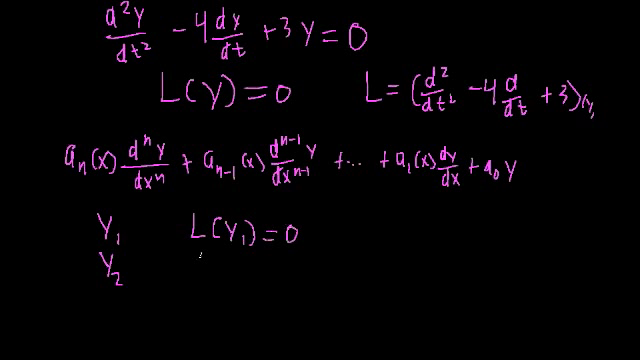 d²y/dt² - 4 dy/dt + 3y = 0
L(y) = 0    L = (d²/dt² - 4 d/dt + 3)(y)
aₙ(x) dⁿy/dxⁿ + aₙ₋₁(x) dⁿ⁻¹y/dxⁿ⁻¹ + ... + a₁(x) dy/dx + a₀ y
y₁    L(y₁) = 0
y₂